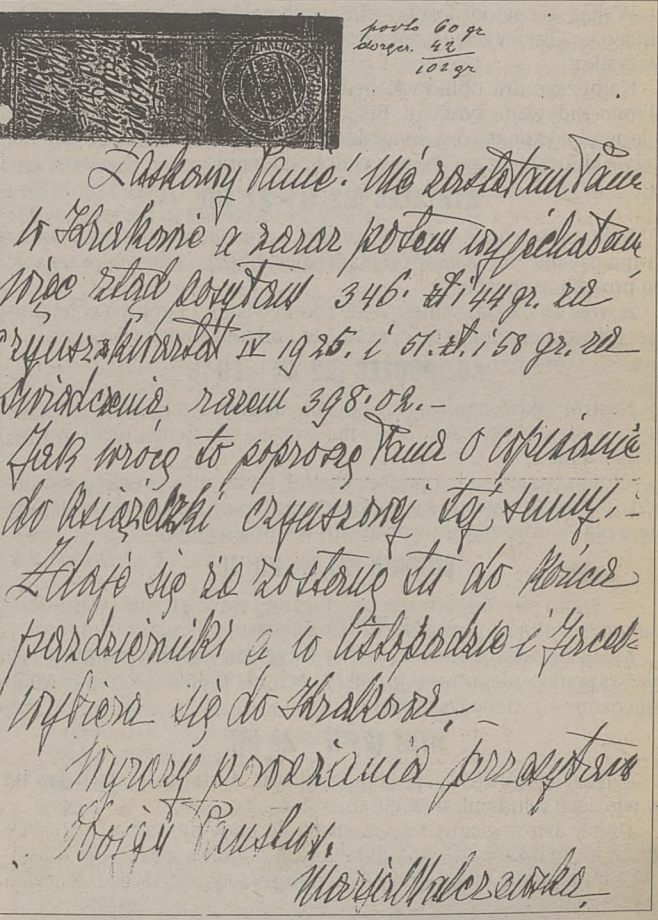 porto 60 gr
doręcz. 42
102 gr
Łaskawy Panie! Nie zastałam Pana
w Krakowie a zaraz potem wyjechałam
więc stąd posyłam 346. zł i 44 gr. za
czynsz kwartał IV 1925. i 51. zł. i 58 gr. za
świadczenia razem 398.02.-
Jak wrócę to poproszę Pana o wpisanie
do książeczki czynszowej tej sumy.-
Zdaje się że zostanę tu do końca
października a w listopadzie i Jacek
wybiera się do Krakowa.
Wyrazy poważania przesyłam
Obojgu Państwu.
Marja Malczewska.